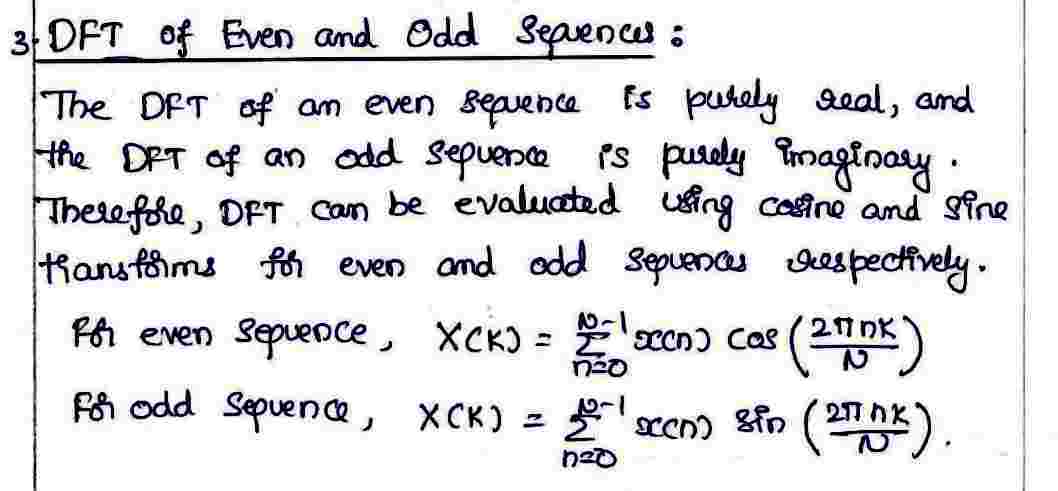 3. DFT of Even and Odd Sequences :
The DFT of an even sequence is purely real, and
the DFT of an odd sequence is purely imaginary.
Therefore, DFT can be evaluated using cosine and sine
transforms for even and odd sequences respectively.
For even sequence, X(K) = Σ_{n=0}^{N-1} x(n) cos (2πnK/N)
For odd sequence, X(K) = Σ_{n=0}^{N-1} x(n) sin (2πnK/N).